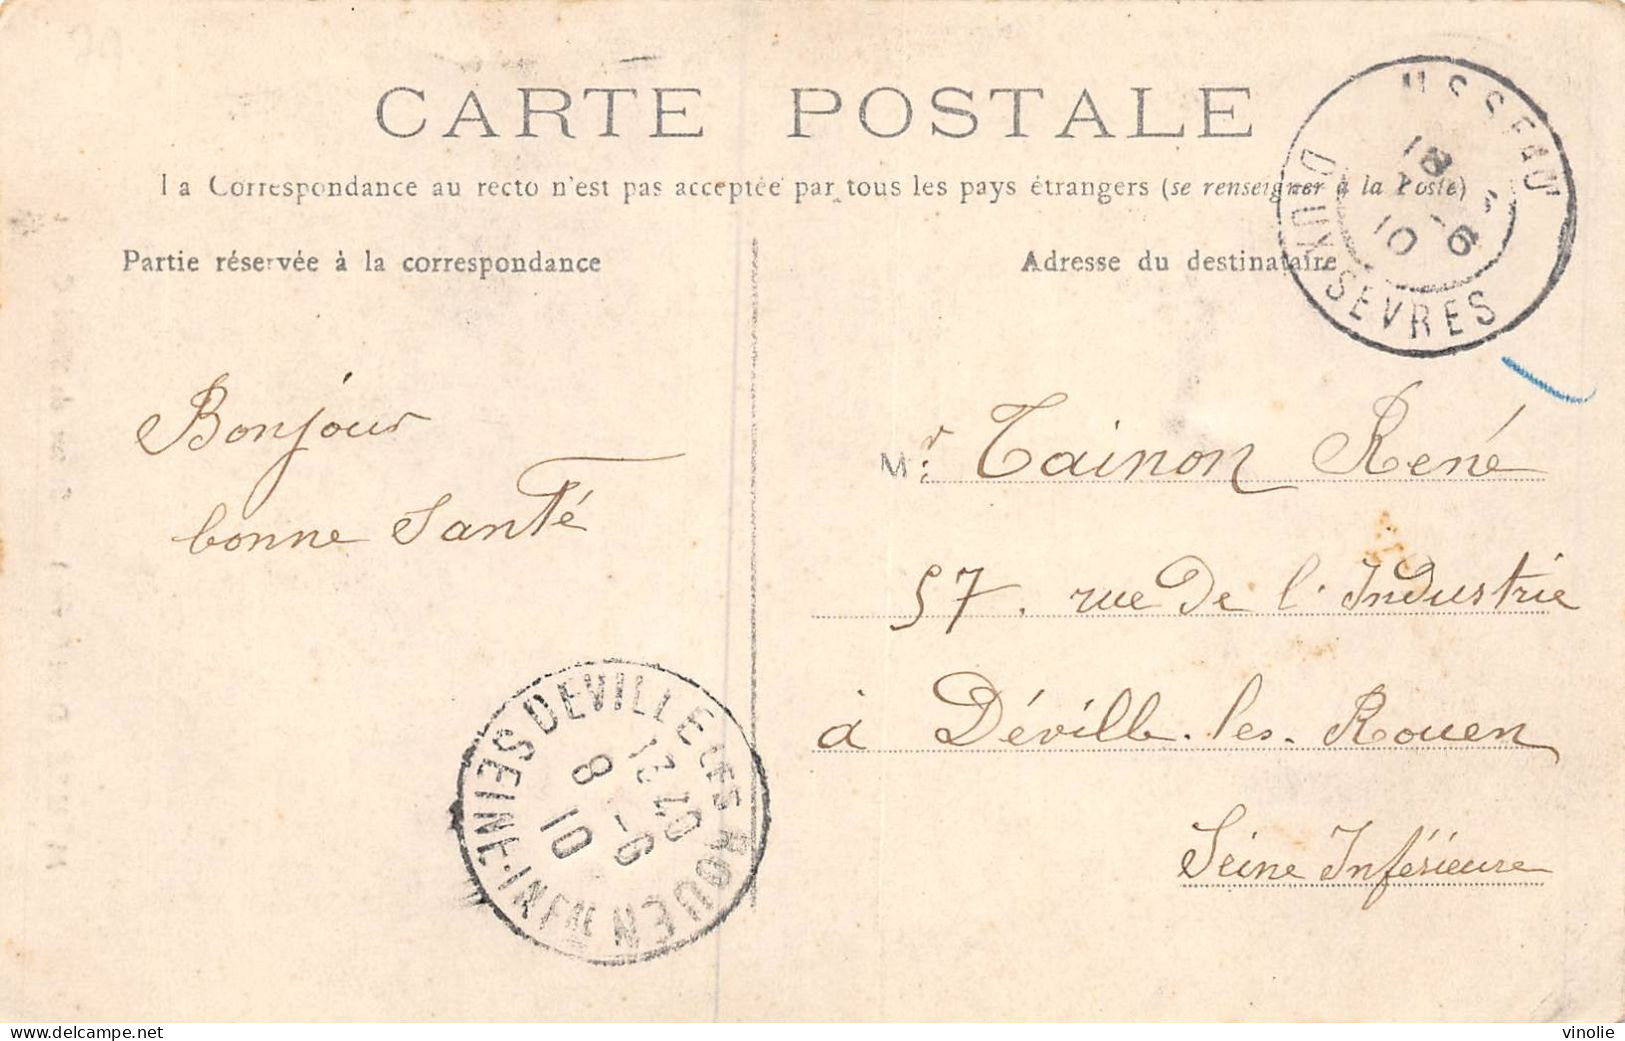 CARTE POSTALE
La Correspondance au recto n'est pas acceptée par tous les pays étrangers (se renseigner à la Poste)
Partie réservée à la correspondance
Adresse du destinataire
USSEAU
DEUX-SEVRES
18
10 -6
Bonjour
bonne Santé
Mr: Tainon René
57. rue De l'Industrie
à Déville-les-Rouen
Seine Inférieure
DEVILLE LES ROUEN
SEINE-INFRE
8 -6
10
vinolie